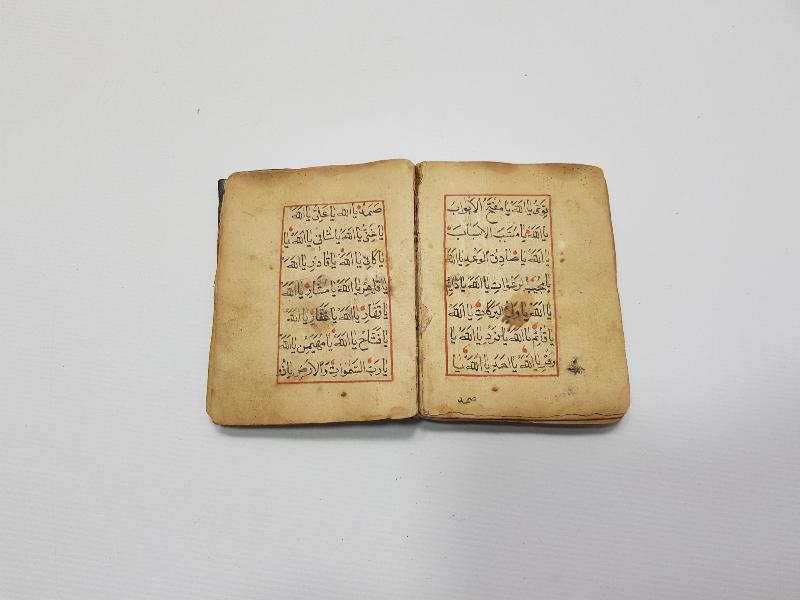 يا الله يا مفتح الابواب
يا الله يا مسبب الاسباب
يا الله يا صادق الوعد يا الله
يا مجيب يا الله
يا الله يا البركات يا الله
يا قائم يا الله يا فرد يا الله يا
وتر يا الله يا احد يا الله يا
صمد
صمد يا الله يا علي يا الله
يا غني يا الله يا شافي يا الله يا
يا كافي يا الله يا قادر يا الله
يا قاهر يا الله يا ستار يا الله
يا قهار يا الله يا غفار يا الله
يا فتاح يا الله يا مهيمن يا الله
يا رب السموات والارض يا ذو